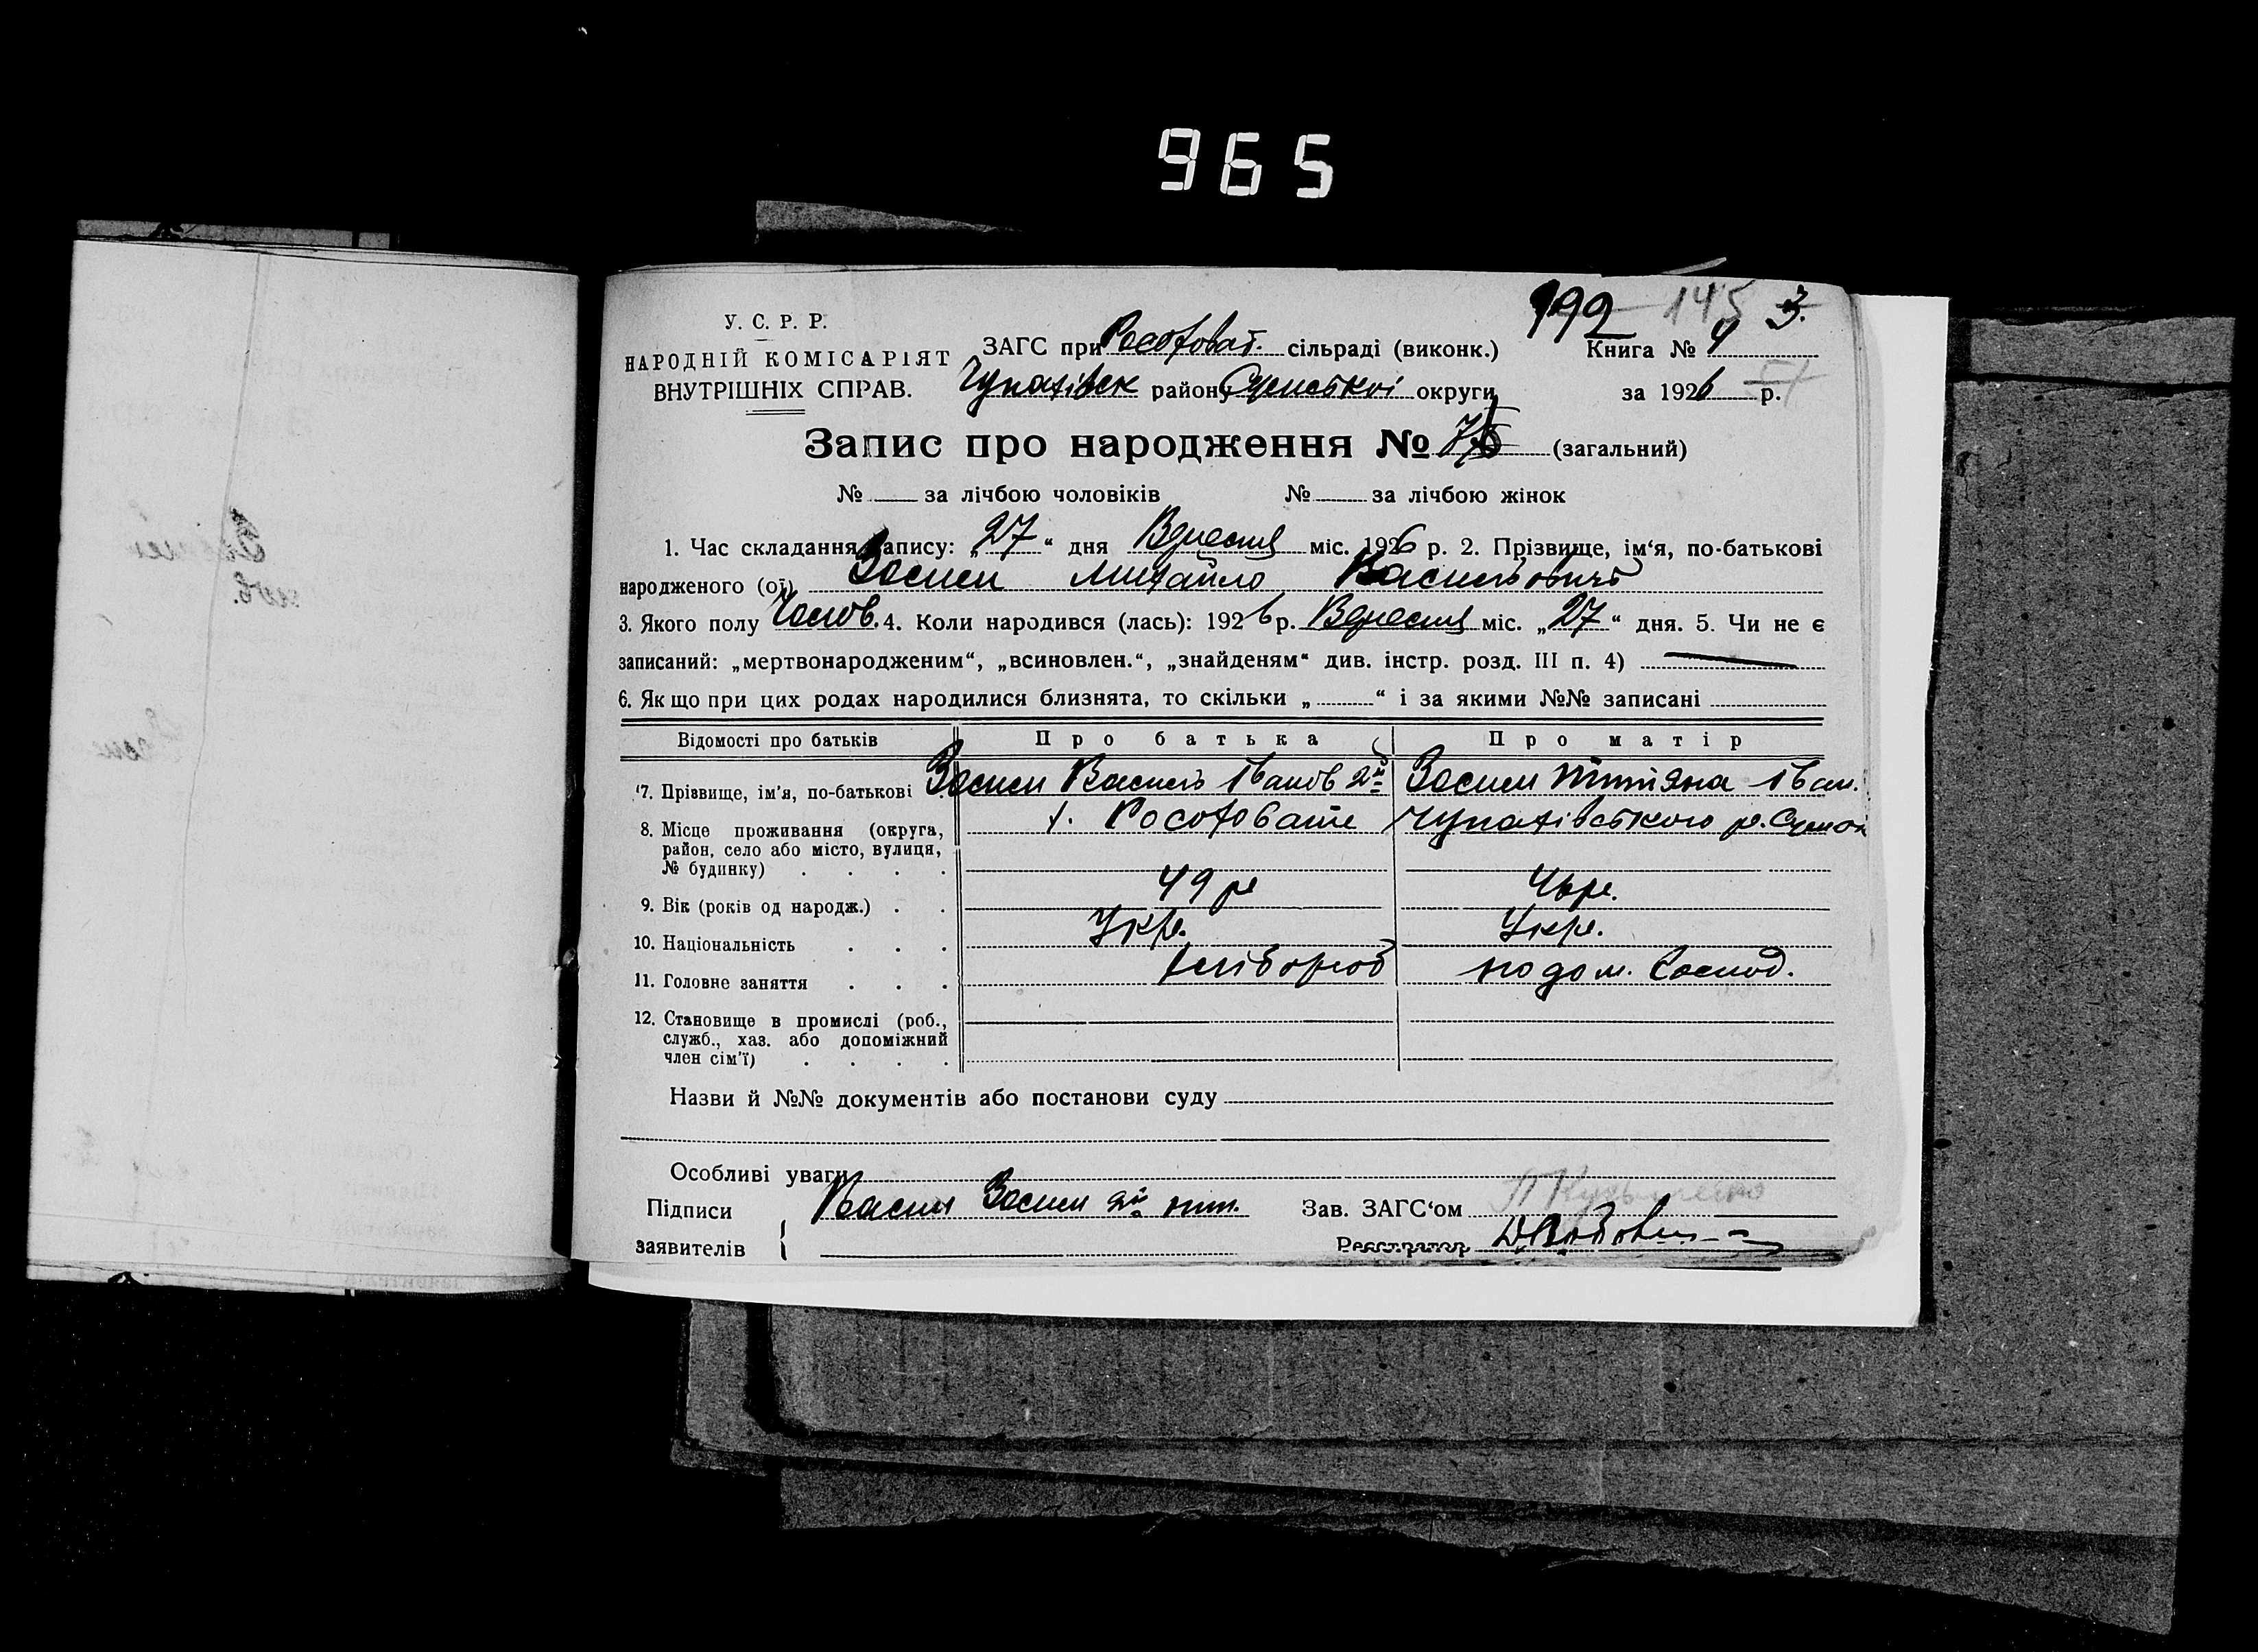 965
192 145 3.
У. С. Р. Р.
НАРОДНІЙ КОМІСАРІЯТ
ВНУТРІШНІХ СПРАВ.
ЗАГС при Рософоват. сільраді (виконк.)
Книга № 4
Чупахівськ району Сумської округи
за 1926 р.
Запис про народження № (загальний)
№ за лічбою чоловіків № за лічбою жінок
1. Час складання запису: „27“ дня Вересня міс. 1926 р. 2. Прізвище, ім‘я, по-батькові
народженого (ої) Михайло Васильович
3. Якого полу Чолов. 4. Коли народився (лась): 1926 р. Вересня міс. „27“ дня. 5. Чи не є
записаний: „мертвонародженим“, „всиновлен.“, „знайденям“ див. інстр. розд. III п. 4)
6. Якщо при цих родах народилися близнята, то скільки „ “ і за якими №№ записані
Відомості про батьків Про батька Про матір
7. Прізвище, ім‘я, по-батькові Василь Іванов 2й Іван.
8. Місце проживання (округа, х. Рософовате Чупахівського р. Сумок
район, село або місто, вулиця,
№ будинку)
9. Вік (років од народж.) 49 р 46р.
10. Національність Укр. Укр.
11. Головне заняття хлібороб по дом. господ.
12. Становище в промислі (роб.,
служб., хаз. або допоміжний
член сім‘ї)
Назви й №№ документів або постанови суду
Особливі уваги
Підписи Зав. ЗАГС‘ом
заявителів Реєстратор